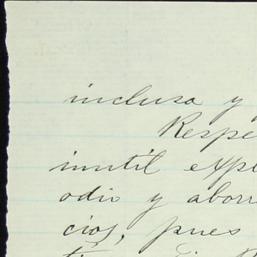 inclusa y
Respe
inutil expl
odio y aborr
cios, pues